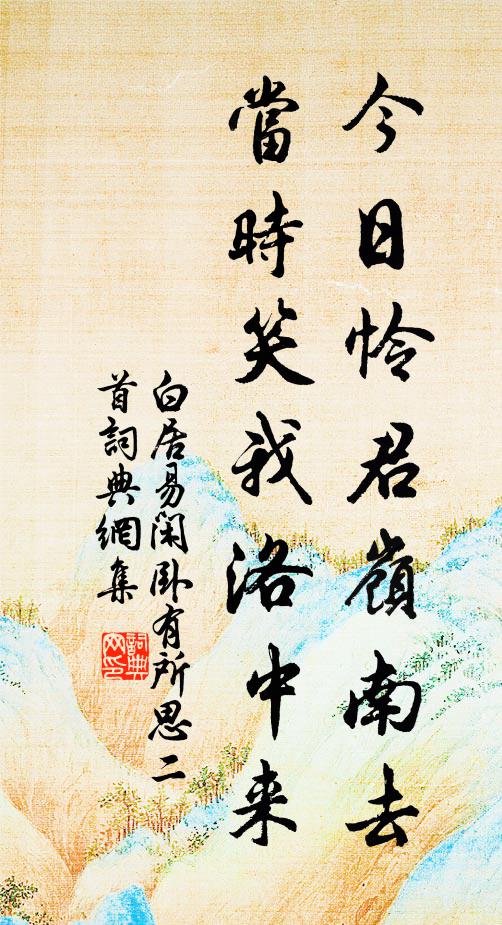 今日怜君嶺南去
當時笑我洛中来
白居易閑卧有所思二
首詞典網集
詞典網印